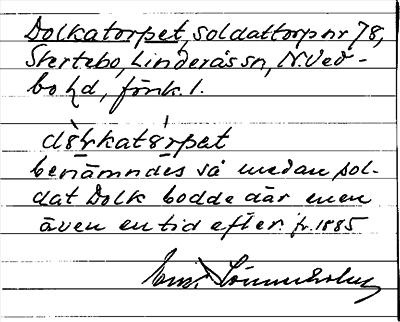 Dolkatorpet, soldattorp nr 78,
Stertebo, Linderås sn, N. Ved-
bo hd, förik. 1.
dålkatårpet
benämndes så medan sol-
dat Dolk bodde där men
även en tid efter. fr. 1885